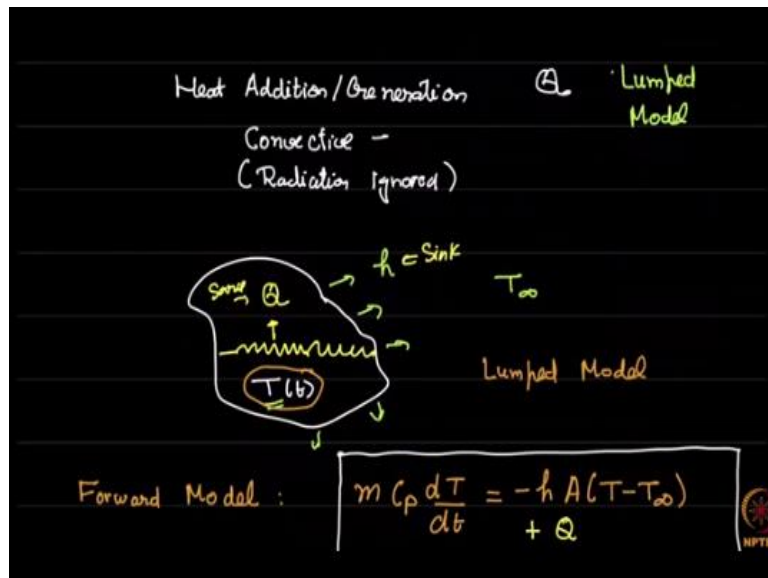 Heat Addition/Generation Q Lumped Model
Convective –
(Radiation ignored)
h = Sink
T∞
Q
T(t)
Lumped Model
Forward Model : m Cp dT/dt = -h A(T-T∞)
+ Q
NPTE